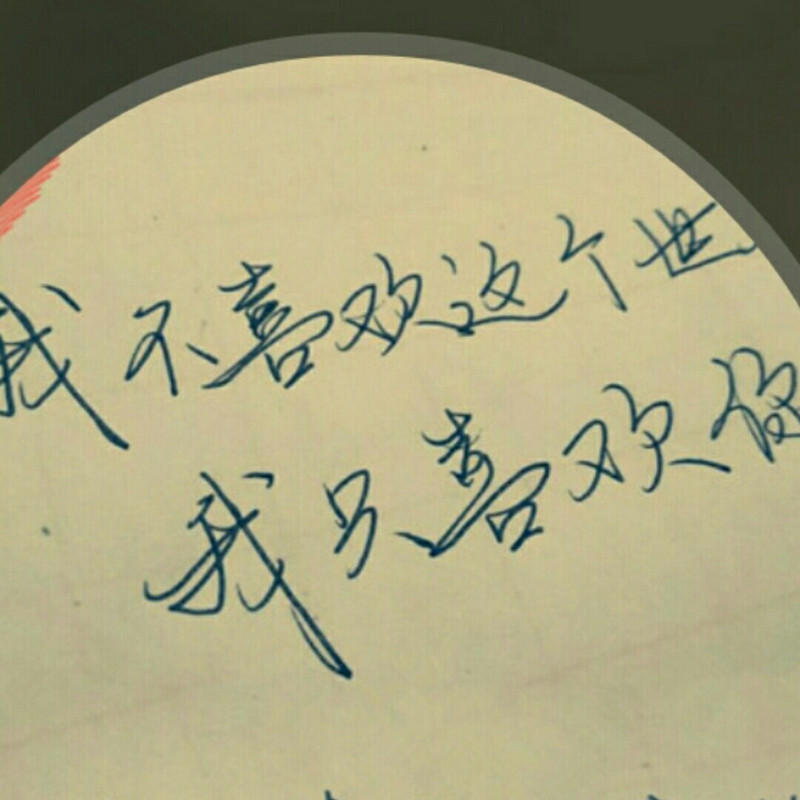 我不喜欢这个世
我只喜欢你